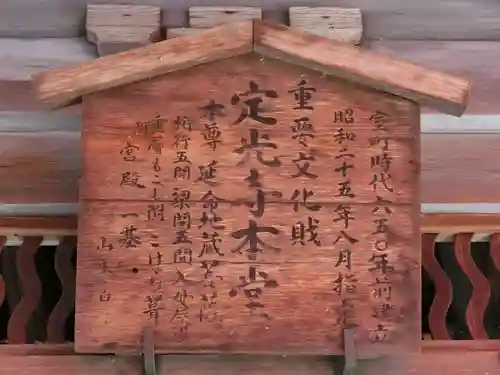 室町時代六五〇年前建立
昭和二十五年八月指定
重要文化財
定光寺本堂
本尊 延命地蔵菩薩
桁行五間 梁間五間 入母屋造
重層もこし附 こけら葺
附 宮殿 一基
山主 白